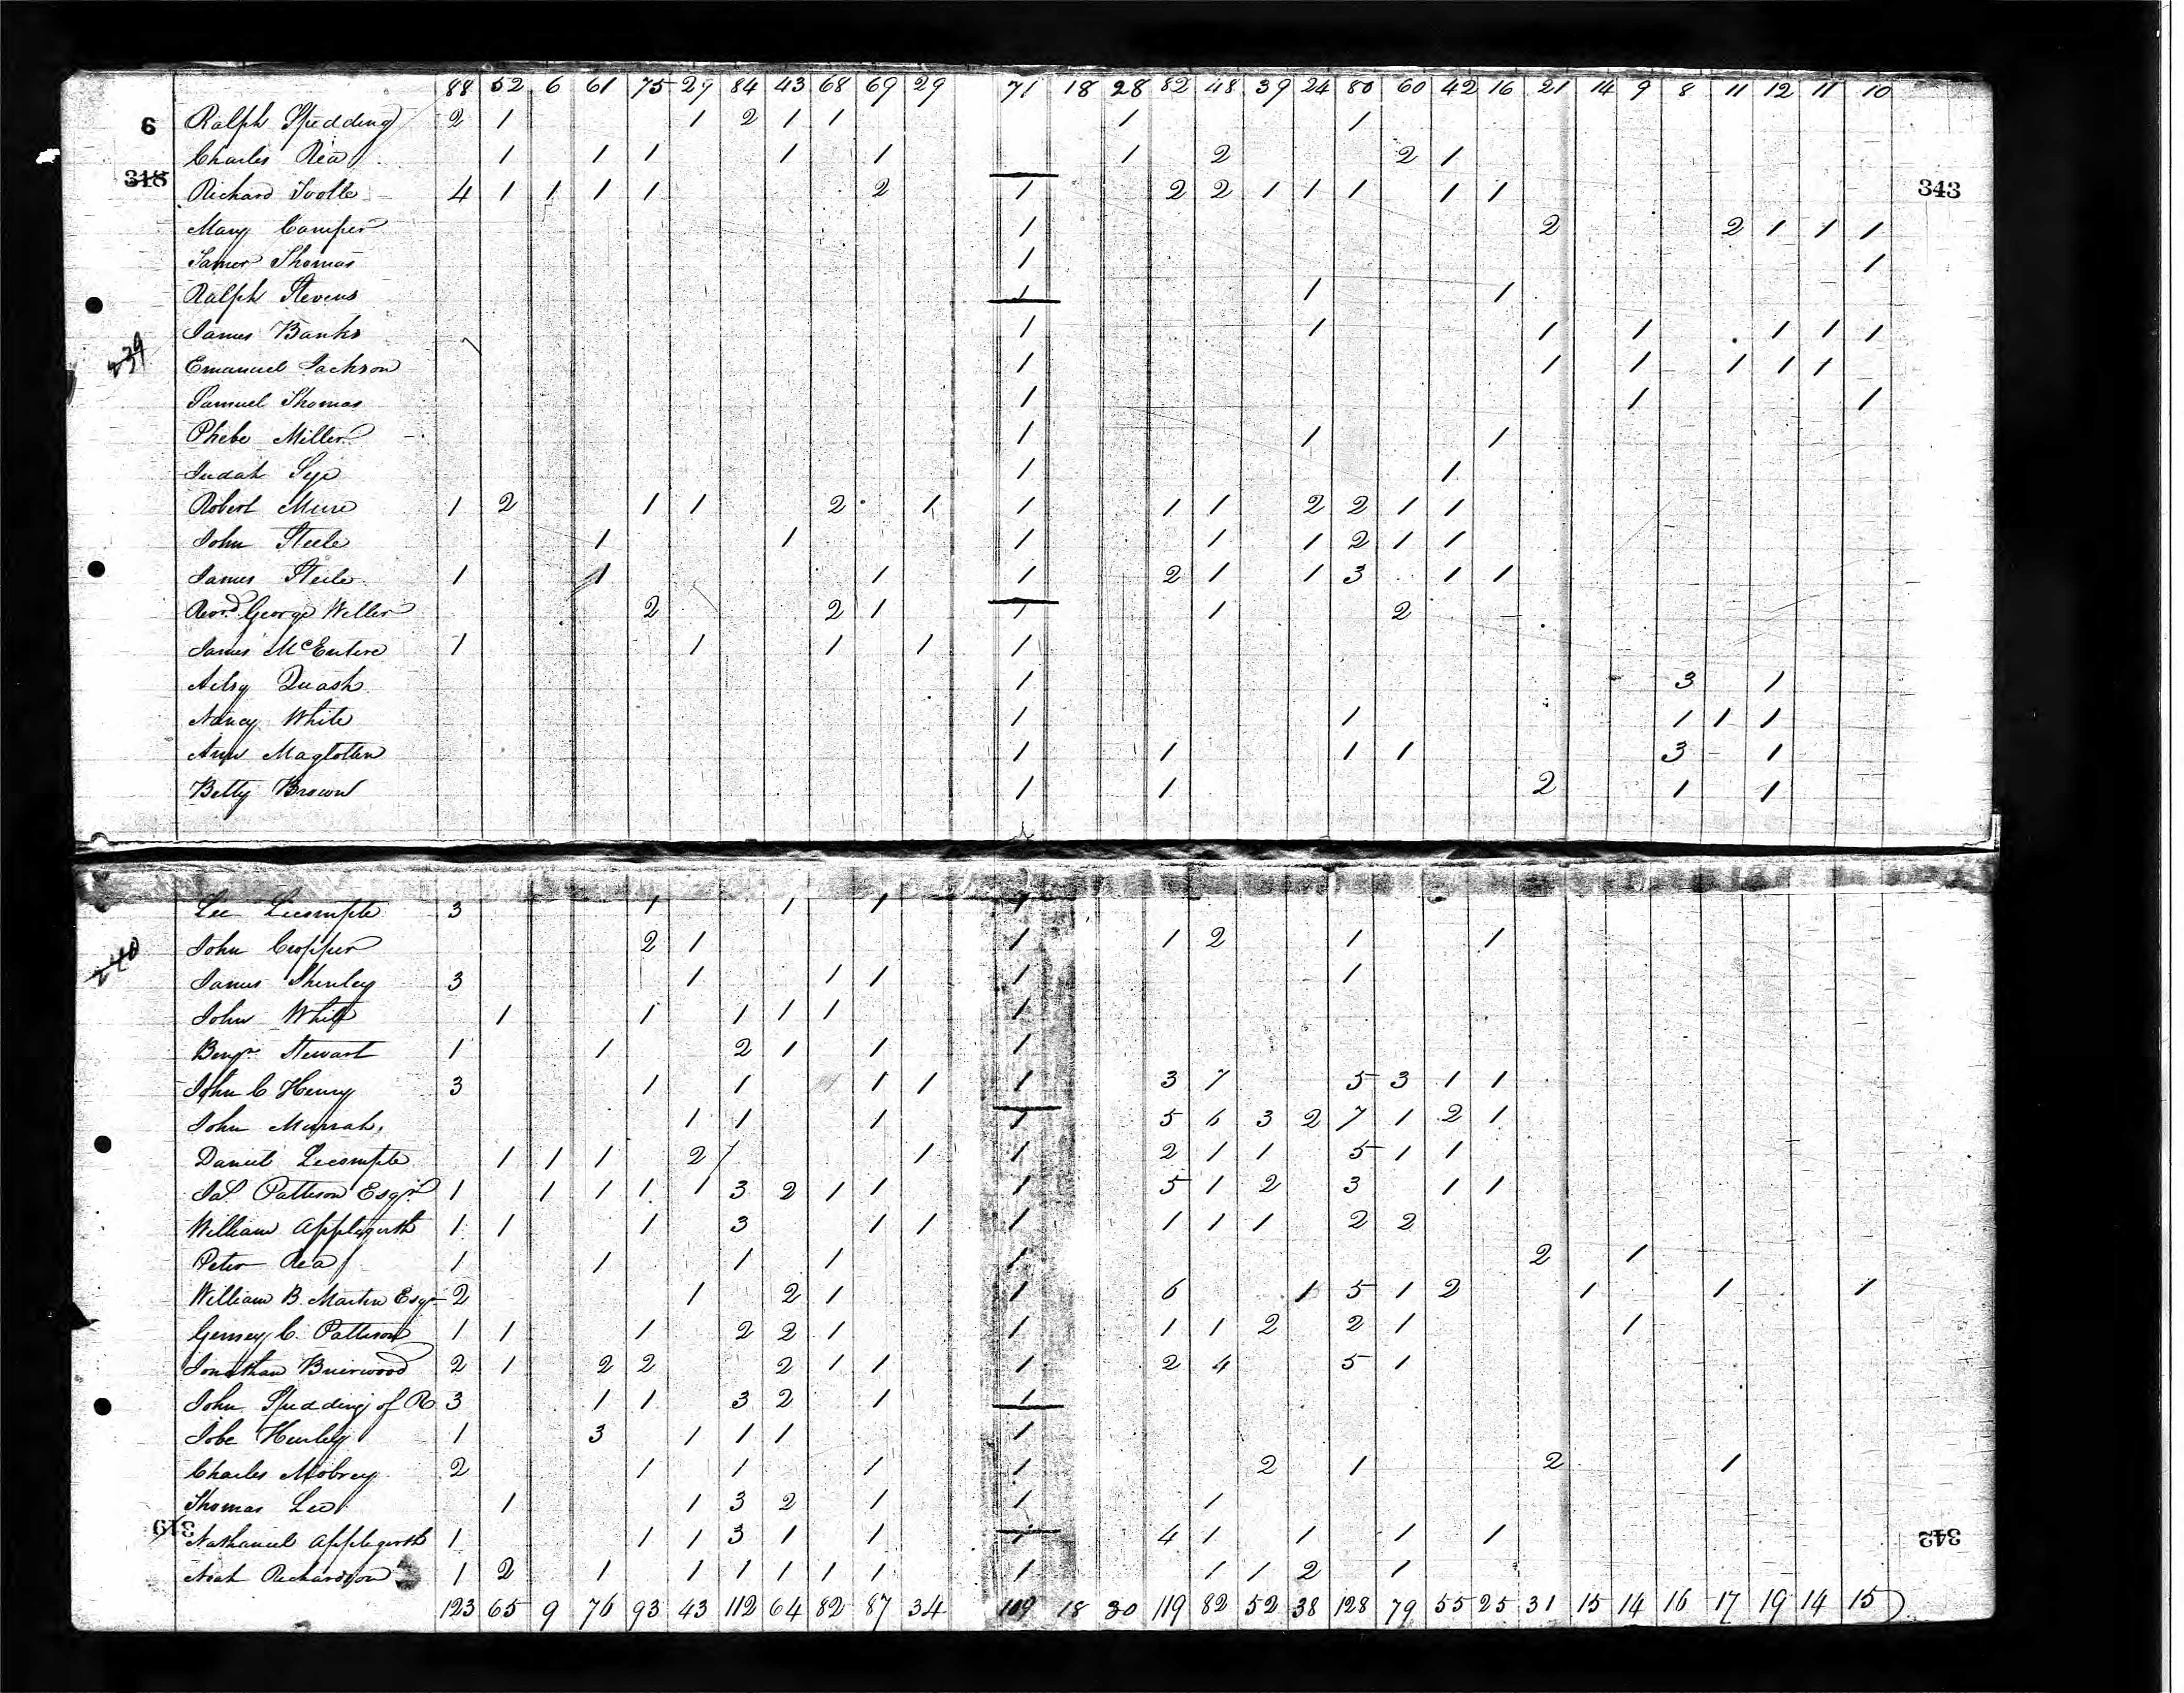 88 52 6 61 75 29 84 43 68 69 29 71 18 28 82 48 39 24 80 60 42 16 21 14 9 8 11 12 11 10
6 Ralph Spedding 2 1 1 2 1 1 1 1
Charles Rea 1 1 1 1 1 1 2 2 1
318 Richard Toolle 4 1 1 1 1 2 1 2 2 1 1 1 1 1 343
Mary Camper 1 2 2 1 1 1
Thomas 1 1
Ralph Stevens 1 1 1
James Banks 1 1 1 1 1 1 1
239 Emanuel Jackson 1 1 1 1 1 1
Samuel Thomas 1 1 1
Phebe Miller 1 1 1
Judah 1 1
Robert Muse 1 2 1 1 2 1 1 1 1 2 2 1 1
John Steele 1 1 1 1 1 2 1 1
James Steele 1 1 1 1 2 1 1 3 1 1
Revd. George Weller 2 2 1 1 1 2
James McEntere 1 1 1 1 1
Quash 1 3 1
Nancy White 1 1 1 1 1
Ann Maglotten 1 1 1 1 3 1
Betty Brown 1 1 2 1 1
Lee Lecompte 3 1 1 1 1
240 John Cropper 2 1 1 1 2 1 1
James Shenley 3 1 1 1 1 1
John White 1 1 1 1 1 1
Benjn. Stewart 1 1 2 1 1 1
John C Henry 3 1 1 1 1 1 3 7 5 3 1 1
John 1 1 1 1 5 6 3 2 7 1 2 1
Daniel Lecompte 1 1 1 2 1 1 1 2 1 1 5 1 1
Jas. Pattison Esqr. 1 1 1 1 1 3 2 1 1 1 5 1 2 3 1 1
William Applegarth 1 1 1 3 1 1 1 1 1 1 2 2
Peter Rea 1 1 1 1 1 2 1
William B. Martin Esqr 2 1 2 1 1 6 1 5 1 2 1 1 1
C. Pattison 1 1 1 2 2 1 1 1 1 2 2 1 1
Jonathan Brierwood 2 1 2 2 2 1 1 1 2 4 5 1
John Spedding of R 3 1 1 3 2 1 1
Jobe Hurley 1 3 1 1 1 1
Charles Mobrey 2 1 1 1 1 2 1 2 1
Thomas Lee 1 1 3 2 1 1 1
319 Nathaniel Applegarth 1 1 1 3 1 1 1 4 1 1 1 1 342
Noah Richardson 1 2 1 1 1 1 1 1 1 1 1 2 1
123 65 9 76 93 43 112 64 82 87 34 109 18 30 119 82 52 38 128 79 55 25 31 15 14 16 17 19 14 15